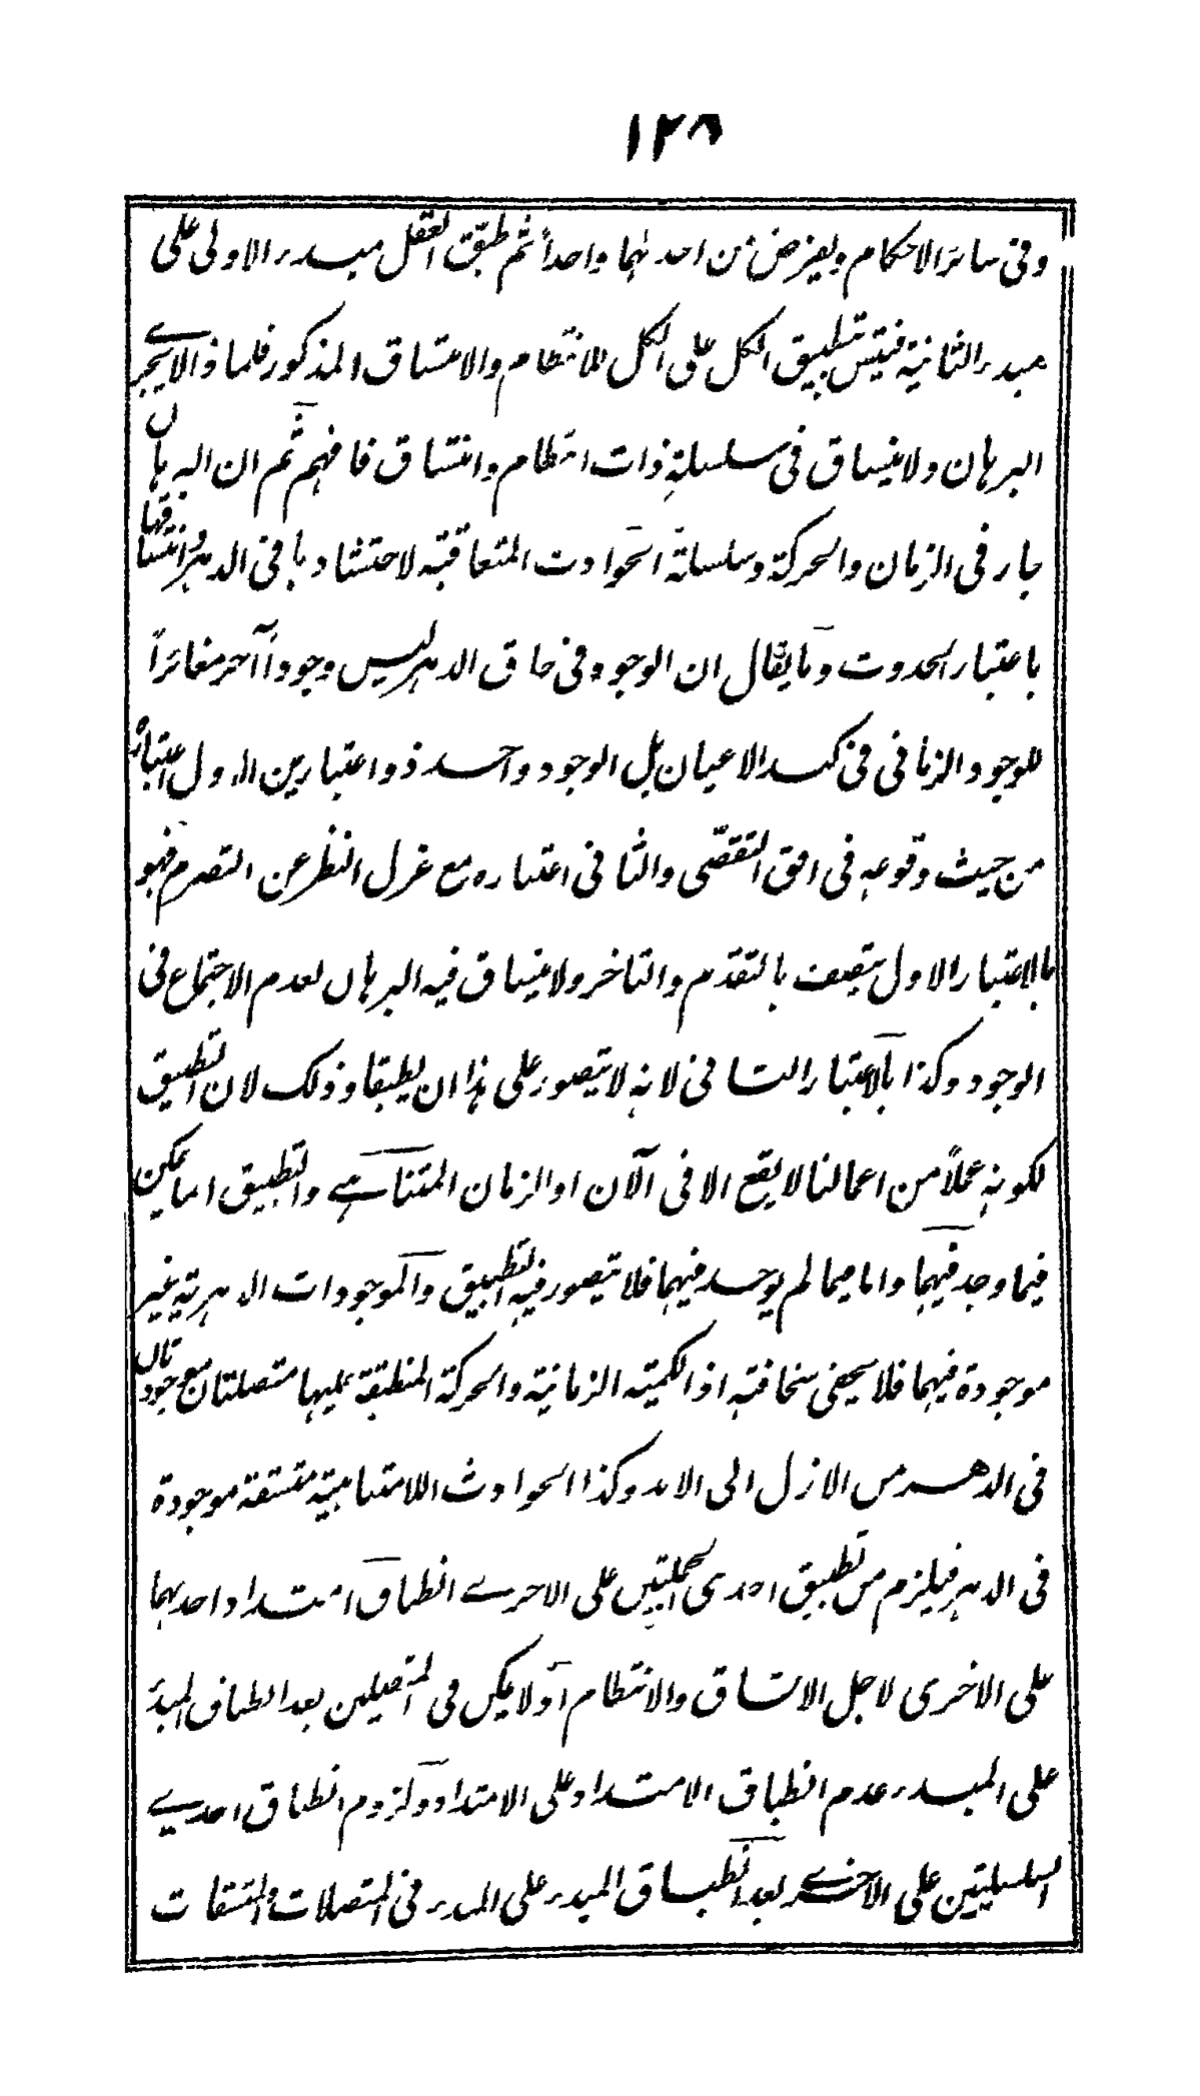 ١٢٨
وفى سائر الاحكام ويفرض من احدٰهما واحداً ثم طبّق العقل مبدء الاولى على
مبدء الثانية فيتس تطبيق الكل على الكل للانتظام والاتساق المذكور فلما ذا لا يجرے
البرهان ولا ينساق فى سلسلة ذات انتظام واتساق فافهم ثم ان البرهان
جار فى الزمان والحركة وسلسلة الحوادث المتعاقبة لاحتشادها فى الدهر واتساقها
باعتبار الحدوث وما يقال ان الوجود فى حاق الدهر ليس وجوداً آخر مغائراً
للوجود الزمانى فى كبد الاعيان بل الوجود واحد ذو اعتبارين الاول اعتباره
من حيث وقوعه فى افق التقضّى والثانى اعتباره مع عزل النظر عن التصرم فهو
بالاعتبار الاول يتصف بالتقدم والتاخر ولا ينساق فيه البرهان لعدم الاجتماع فى
الوجود وكذا بالاعتبار الثانى لانه لا يتصور على هذا ان يطبقا وذلك لان التطبيق
لكونه عملاً من اعمالنا لا يقع الا فى الآن او الزمان المتناهے والتطبيق انما يمكن
فيما وجد فيهما واما فيما لم يوجد فيهما فلا يتصور فيه التطبيق والموجودات الدهرية غير
موجودة فيهما فلا يخفى سخافته اذ الكمية الزمانية والحركة المنطبقة عليها متصلتان موجودتان
فى الدهر من الازل الى الابد وكذا الحوادث اللامتناهية متسقة موجودة
فى الدهر فيلزم من تطبيق احدى الجملتين على الاخرے انطباق امتداد احدٰهما
على الاخرى لاجل الاتساق والانتظام اولا يمكن فى المتصلين بعد انطباق المبدء
على المبدء عدم انطباق الامتداد على الامتداد ولزوم انطباق احدے
السلسلتين على الاخرے بعد انطباق المبدء على المبدء فى المتصلات والمتسقات